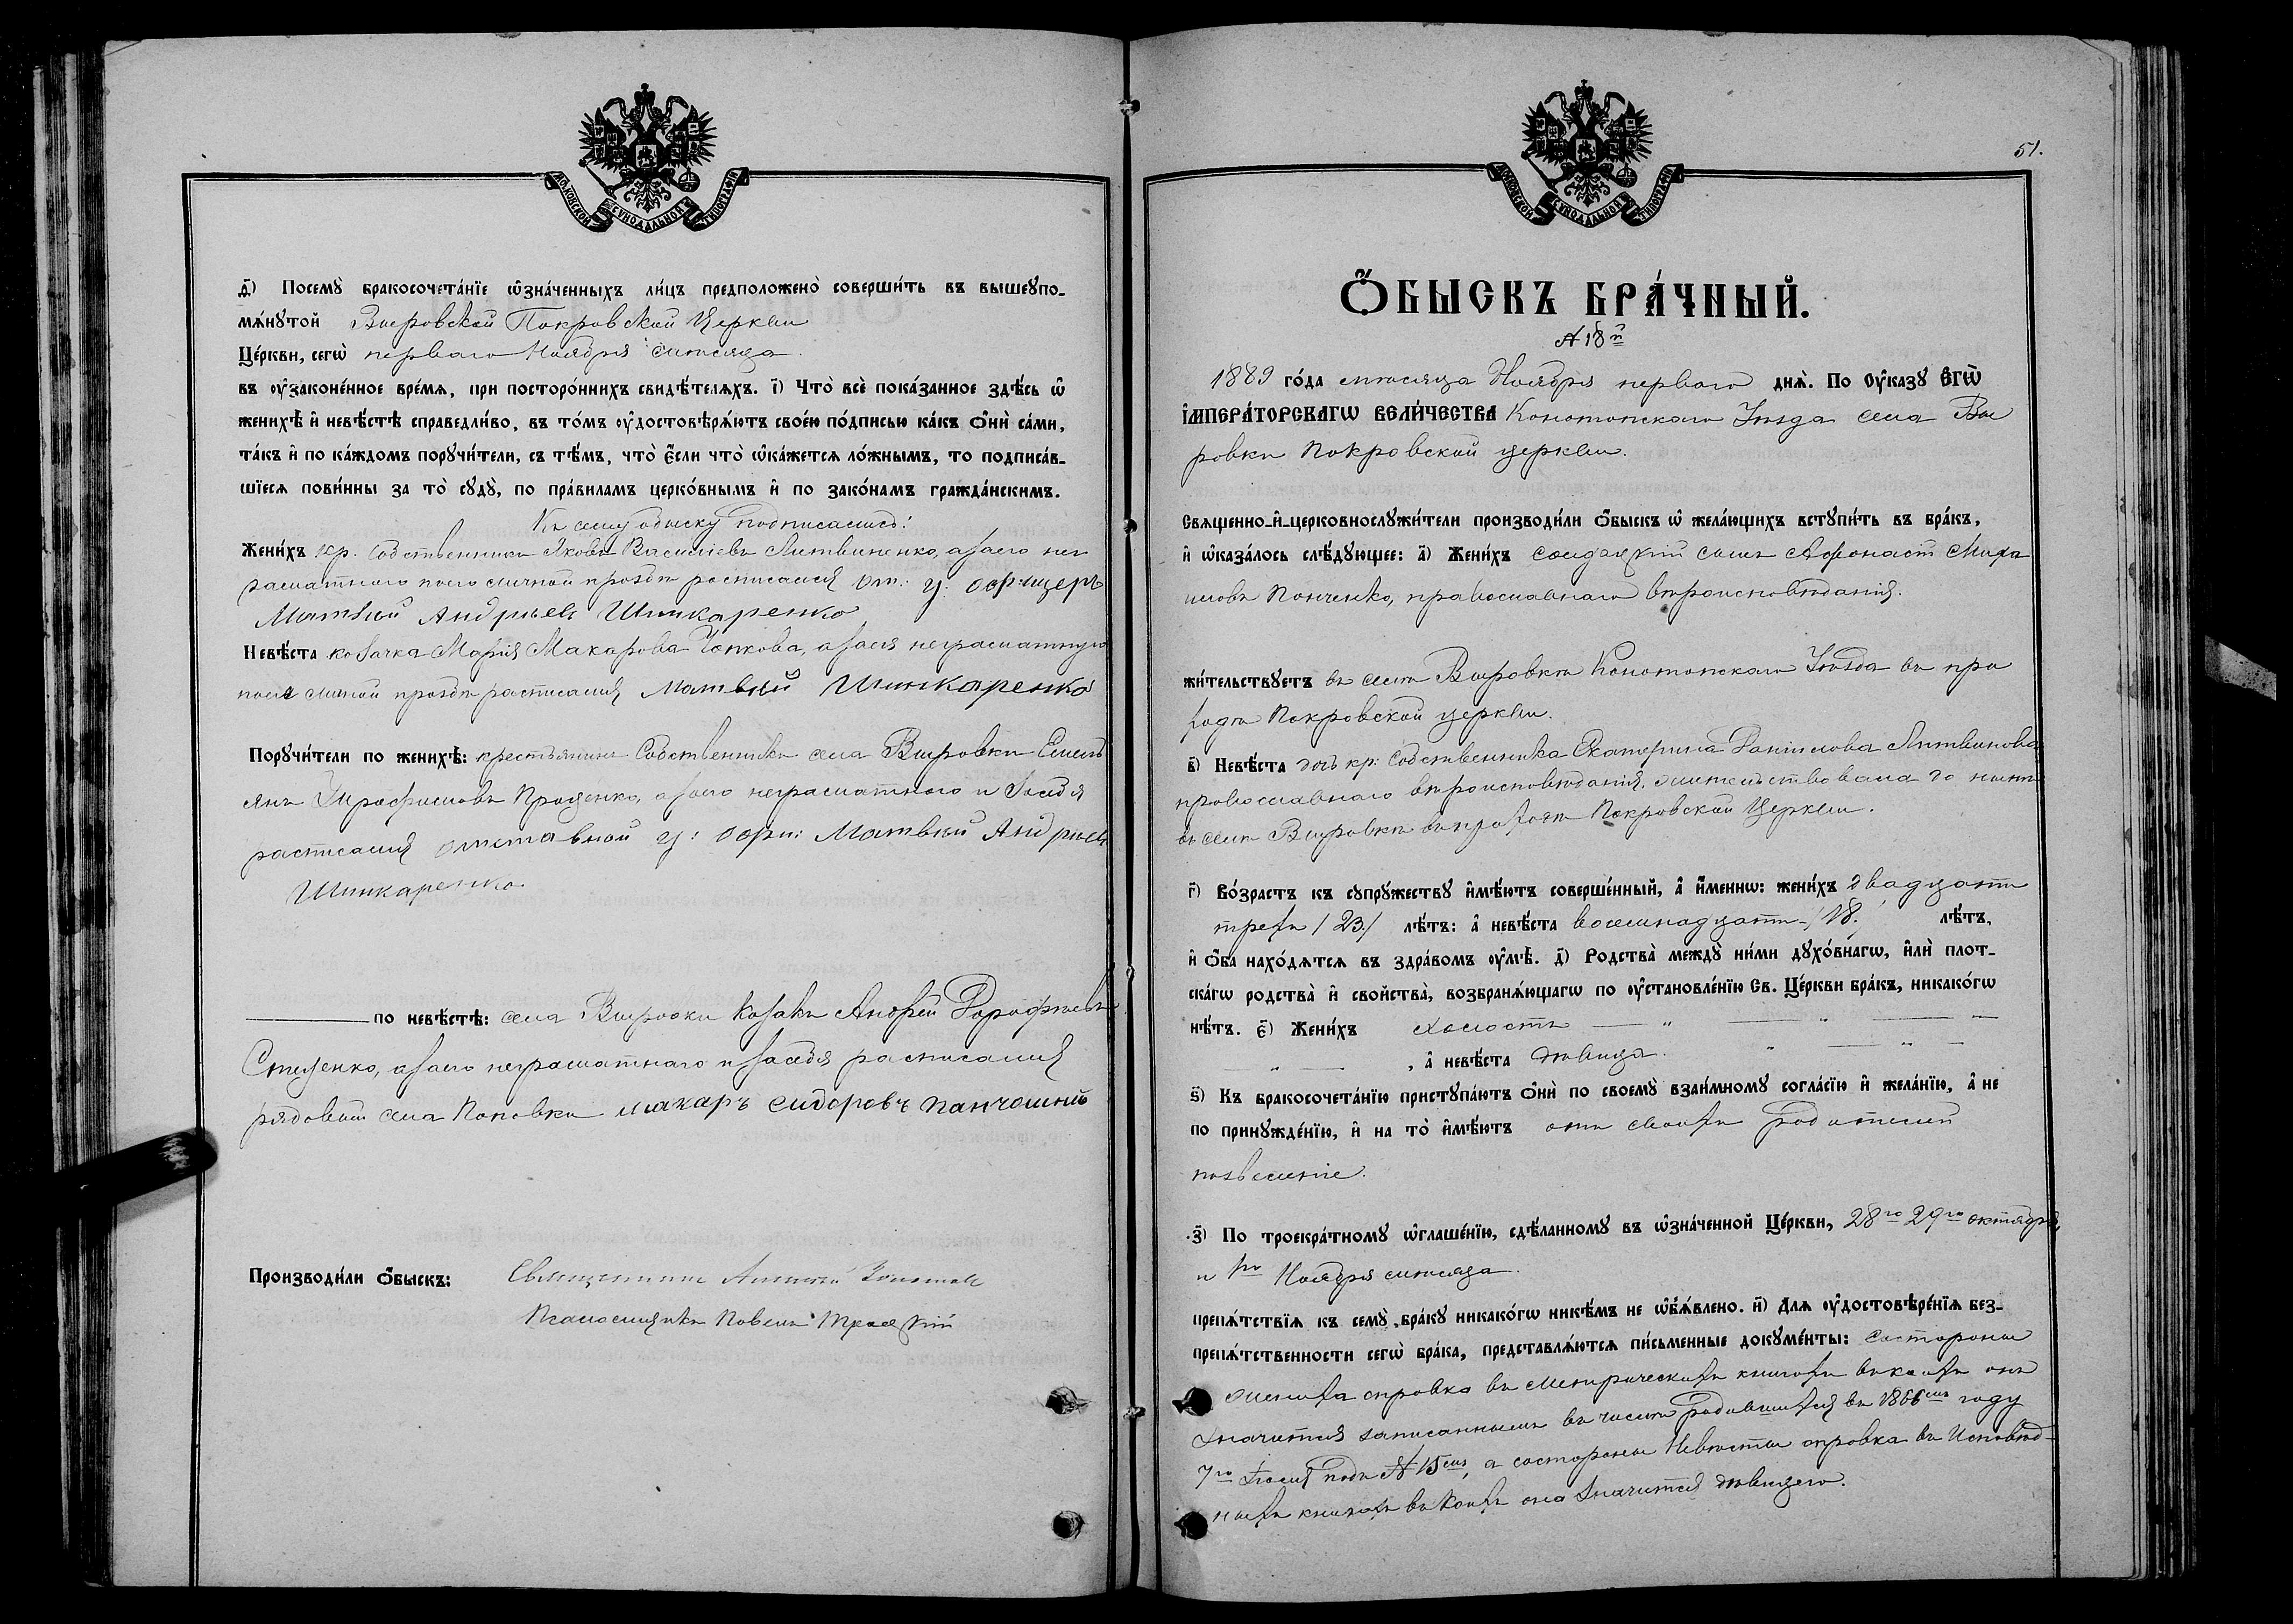 МОСКОВСКОЙ СѴНОДАЛЬНОЙ ТИПОГРАФІИ
д҃і) Посемꙋ̀ бракосочета́нїе ѡ҆зна́ченныхъ ли́цъ предположено̀ соверши́ть въ вышеꙋпо-
мѧ́нꙋтой Вировской Покровской Церкви
Це́ркви, сегѡ̀ перваго Ноября мѣсяца.
въ ᲂу҆законе́нное вре́мѧ, при посторо́ннихъ свидѣ́телѧхъ. і҃) Что̀ всѐ пока́занное здѣ́сь ѡ҆
женихѣ̀ и҆ невѣ́стѣ справедли́во, въ то́мъ ᲂу҆достовѣрѧ́ютъ свое́ю по́дписью ка́къ ѻ҆нѝ са́ми,
та́къ и҆ по ка́ждомъ порꙋчи́тели, съ тѣ́мъ, что̀ є҆́сли что̀ ѡ҆ка́жетсѧ ло́жнымъ, то подписа́в-
шїесѧ пови́нны за то̀ сꙋдꙋ̀, по пра́виламъ церко́внымъ и҆ по зако́намъ гражда́нскимъ.
Къ сему обыску подписались:
Жени́хъ кр. собственникъ Яковъ Василіевъ Литвиненко, а за него не
грамотнаго по его личной прозбѣ росписался от. у: офицеръ
Матвей Андрѣевъ Шинкаренко
Невѣ́ста козачка Марія Макарова Попкова, а за ея неграмотную
по ея личной прозбѣ расписался Матвей Шинкаренко
Порꙋчи́тели по женихѣ̀: крестьянинъ Собственникъ села Вировки Емель
янъ Трофимовъ Проценко, а за его неграмотнаго и за себя
расписался отставной у: офи: Матвей Андрѣевъ
Шинкаренко
по невѣ́стѣ: села Вировки козакъ Андрей Дорофѣевъ
Стеценко, а за его неграмотнаго и за себя расписался
рядовой села Поповки макаръ сидоровъ
Производи́ли ѻ҆́быскъ: Священникъ Алексѣй
Псаломщикъ Павелъ

МОСКОВСКОЙ СѴНОДАЛЬНОЙ ТИПОГРАФІИ
51.
Ѻ҆́БЫСКЪ БРА́ЧНЫЙ.
№ 18й
1889 го́да мѣсяца Ноября перваго днѧ̀. По Оу҆ка́зꙋ Є҆ГѠ̀
І҆МПЕРА́ТОРСКАГѠ ВЕЛИ́ЧЕСТВА Конотопскаго Уѣзда села Ви
ровки Покровской церкви.
Свѧще́нно-и҆-церковнослꙋжи́тели производи́ли ѻ҆́быскъ ѡ҆ жела́ющихъ встꙋпи́ть въ бра́къ,
и҆ ѡ҆каза́лось слѣ́дꙋющее: а҃) Жени́хъ солдацкій сынъ Афонасій Миха
иловъ Панченко, православнаго вѣроисповѣданія.
жи́тельствꙋетъ въ селѣ Вировкѣ Конотопскаго Уѣзда въ при
ходѣ Покровской церкви.
в҃) Невѣ́ста дочь кр: Собственника Екатерина Даніилова Литвинова
православнаго вѣроисповѣданія, жительствовала до нынѣ
въ селѣ Вировкѣ въ приходѣ Покровской Церкви.
г҃) Во́зрастъ къ сꙋпрꙋ́жествꙋ и҆мѣ́ютъ соверше́нный, а҆ и҆́меннѡ: жени́хъ двадцати
трехъ /23./ лѣ́тъ: а҆ невѣ́ста восемнадцати /18. лѣ́тъ,
и҆ ѻ҆́ба нахо́дѧтсѧ въ здра́вомъ ᲂу҆мѣ̀. д҃) Родства̀ междꙋ̀ ни́ми дꙋхо́внагѡ, и҆лѝ плот-
ска́гѡ родства̀ и҆ сво́йства̀, возбранѧ́ющагѡ по ᲂу҆становле́нїю Св. Це́ркви бра́къ, никако́гѡ
нѣ́тъ. є҃) Жени́хъ холостъ — „ — „ —
„ — , а҆ невѣ́ста дѣвица. „ — „ —
ѕ҃) Къ бракосочета́нїю пристꙋпа́ютъ ѻ҆нѝ по своемꙋ̀ взаи́мномꙋ согла́сїю и҆ жела́нїю, а҆ не
по принꙋжде́нїю, и҆ на то̀ и҆мѣ́ютъ отъ своихъ Родителей
позвеленіе.
з҃) По троекра́тномꙋ ѡ҆глаше́нїю, сдѣ́ланномꙋ въ ѡ҆зна́ченной Це́ркви, 28го 29го октября,
и 1го Ноября мѣсяца.
препѧ́тствїѧ къ семꙋ̀ бра́кꙋ никако́гѡ никѣ́мъ не ѡ҆б̾ѧ́влено. и҃) Длѧ ᲂу҆достовѣре́нїѧ без-
препѧ́тственности сегѡ̀ бра́ка, представлѧ́ютсѧ пи́сьменные докꙋме́нты: состороны
жениха справка въ Метрическихъ книгахъ въ коихъ онъ
значится записаннымъ въ числѣ родившихся въ 1866мъ году
7го Іюля подъ № 15мъ, а состороны Невѣсты справка въ Исповѣд-
ныхъ книгахъ въ коихъ она значится дѣвицею.